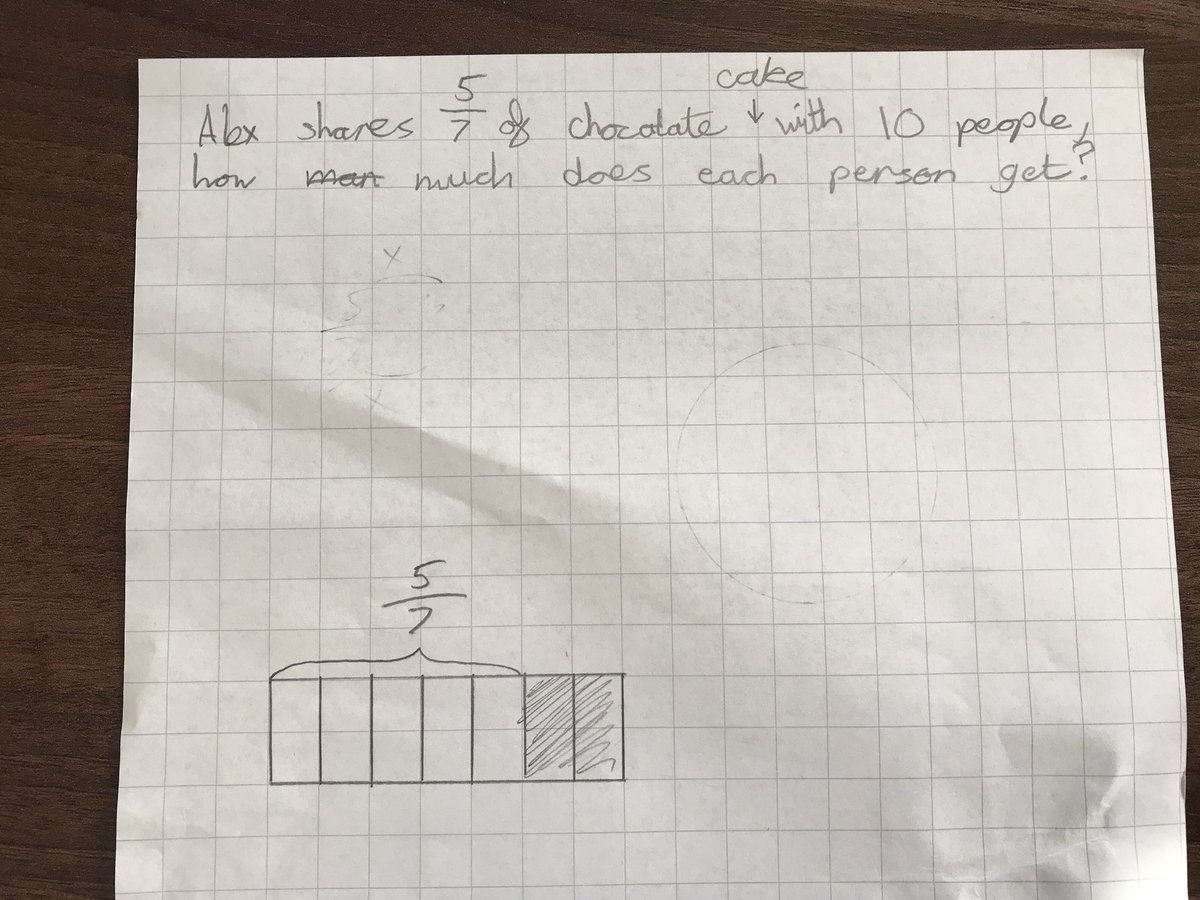 cake
Alex shares 5/7 of chocolate ↓ with 10 people,
how man much does each person get?
5
7